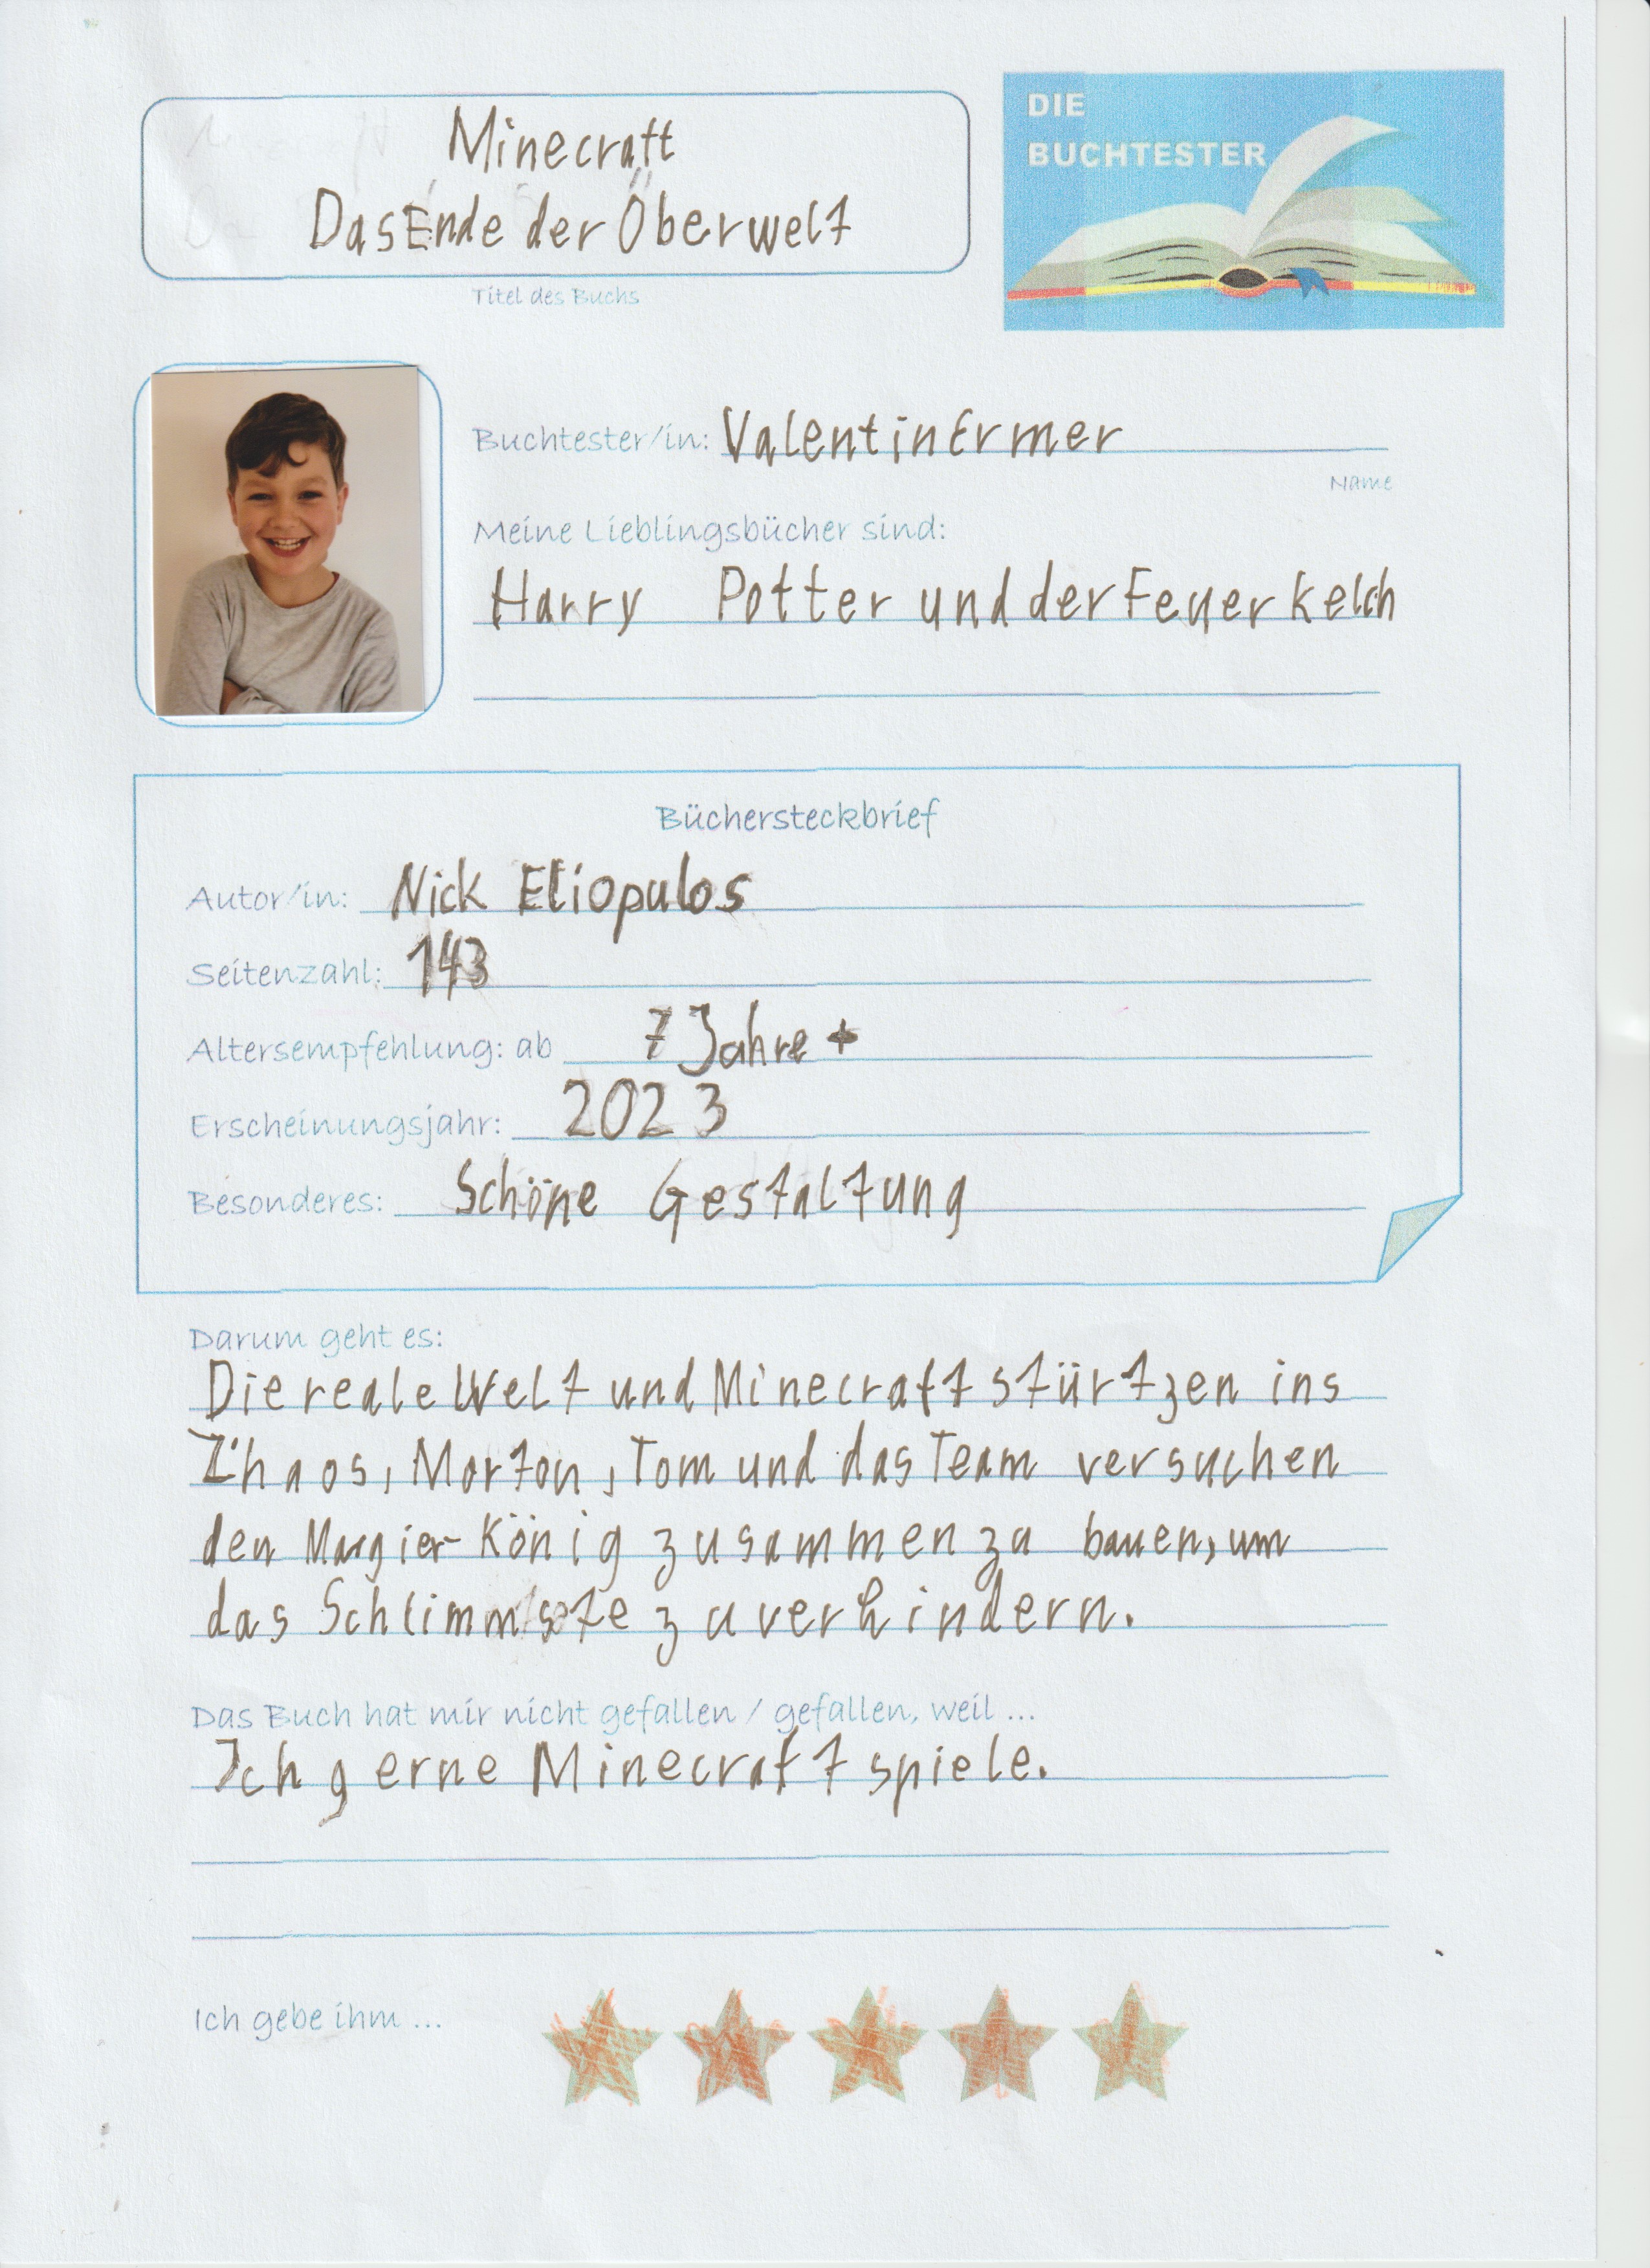 DIE
BUCHTESTER
Minecraft
Das Ende der Oberwelt
Titel des Buchs
Buchtester/in: Valentin Ermer
Name
Meine Lieblingsbücher sind:
Harry Potter und der Feuerkelch
Büchersteckbrief
Autor/in: Nick Eliopulos
Seitenzahl: 143
Altersempfehlung: ab 7 Jahre +
Erscheinungsjahr: 2023
Besonderes: Schöne Gestaltung
Darum geht es:
Die reale Welt und Minecraft stürtzen ins
Chaos, Morton, Tom und das Team versuchen
den Magier-König zusammen zu bauen, um
das Schlimmste zu verhindern.
Das Buch hat mir nicht gefallen / gefallen, weil ...
Ich gerne Minecraft spiele.
Ich gebe ihm ...